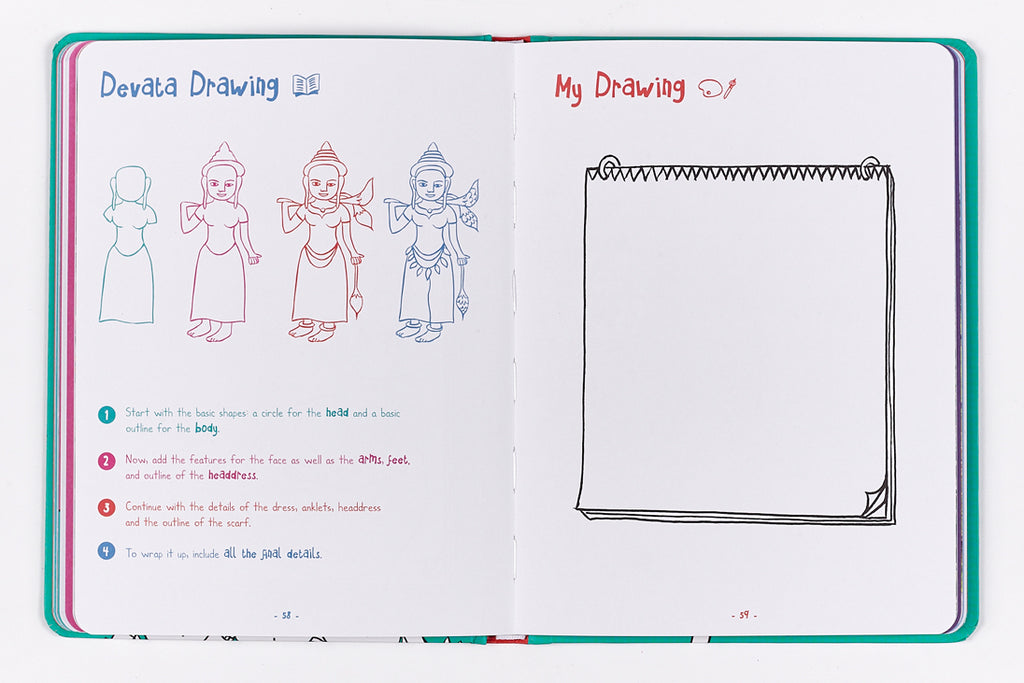 Devata Drawing
1 Start with the basic shapes: a circle for the head and a basic
outline for the body.
2 Now, add the features for the face as well as the arms, feet,
and outline of the headdress.
3 Continue with the details of the dress, anklets, headdress
and the outline of the scarf.
4 To wrap it up, include all the final details.
- 58 -
My Drawing
- 59 -